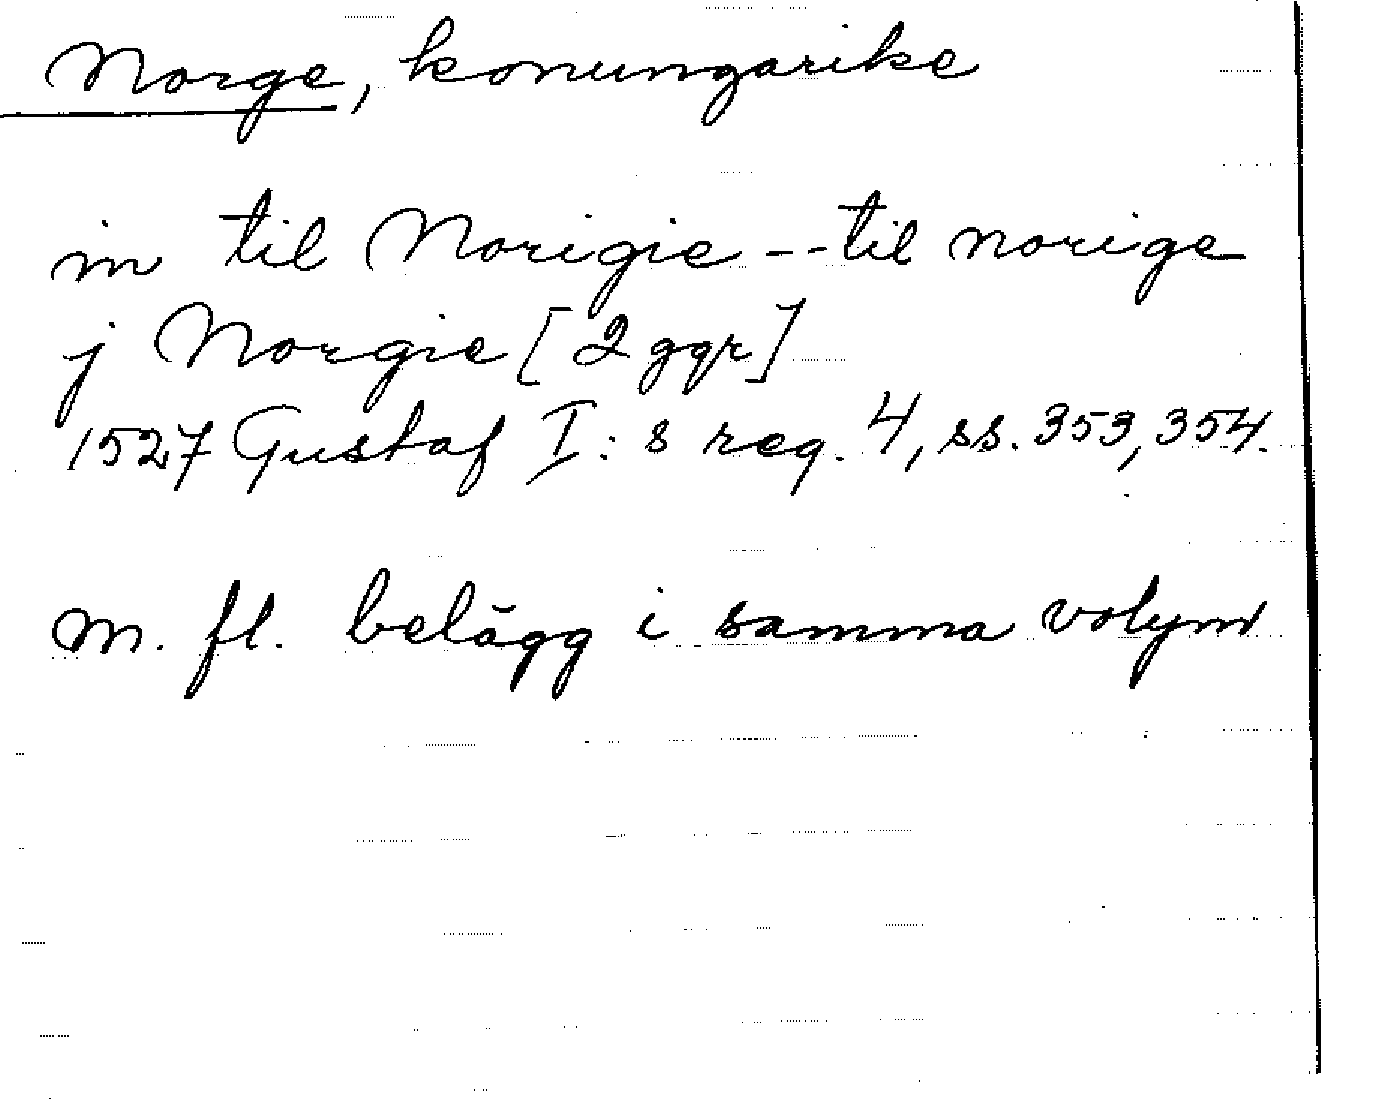 Norge, konungarike
in til Norigie -- til norige
j Norgie [2 ggr]
1527 Gustaf I:s reg. 4, ss. 353, 354.
m. fl. belägg i samma volym